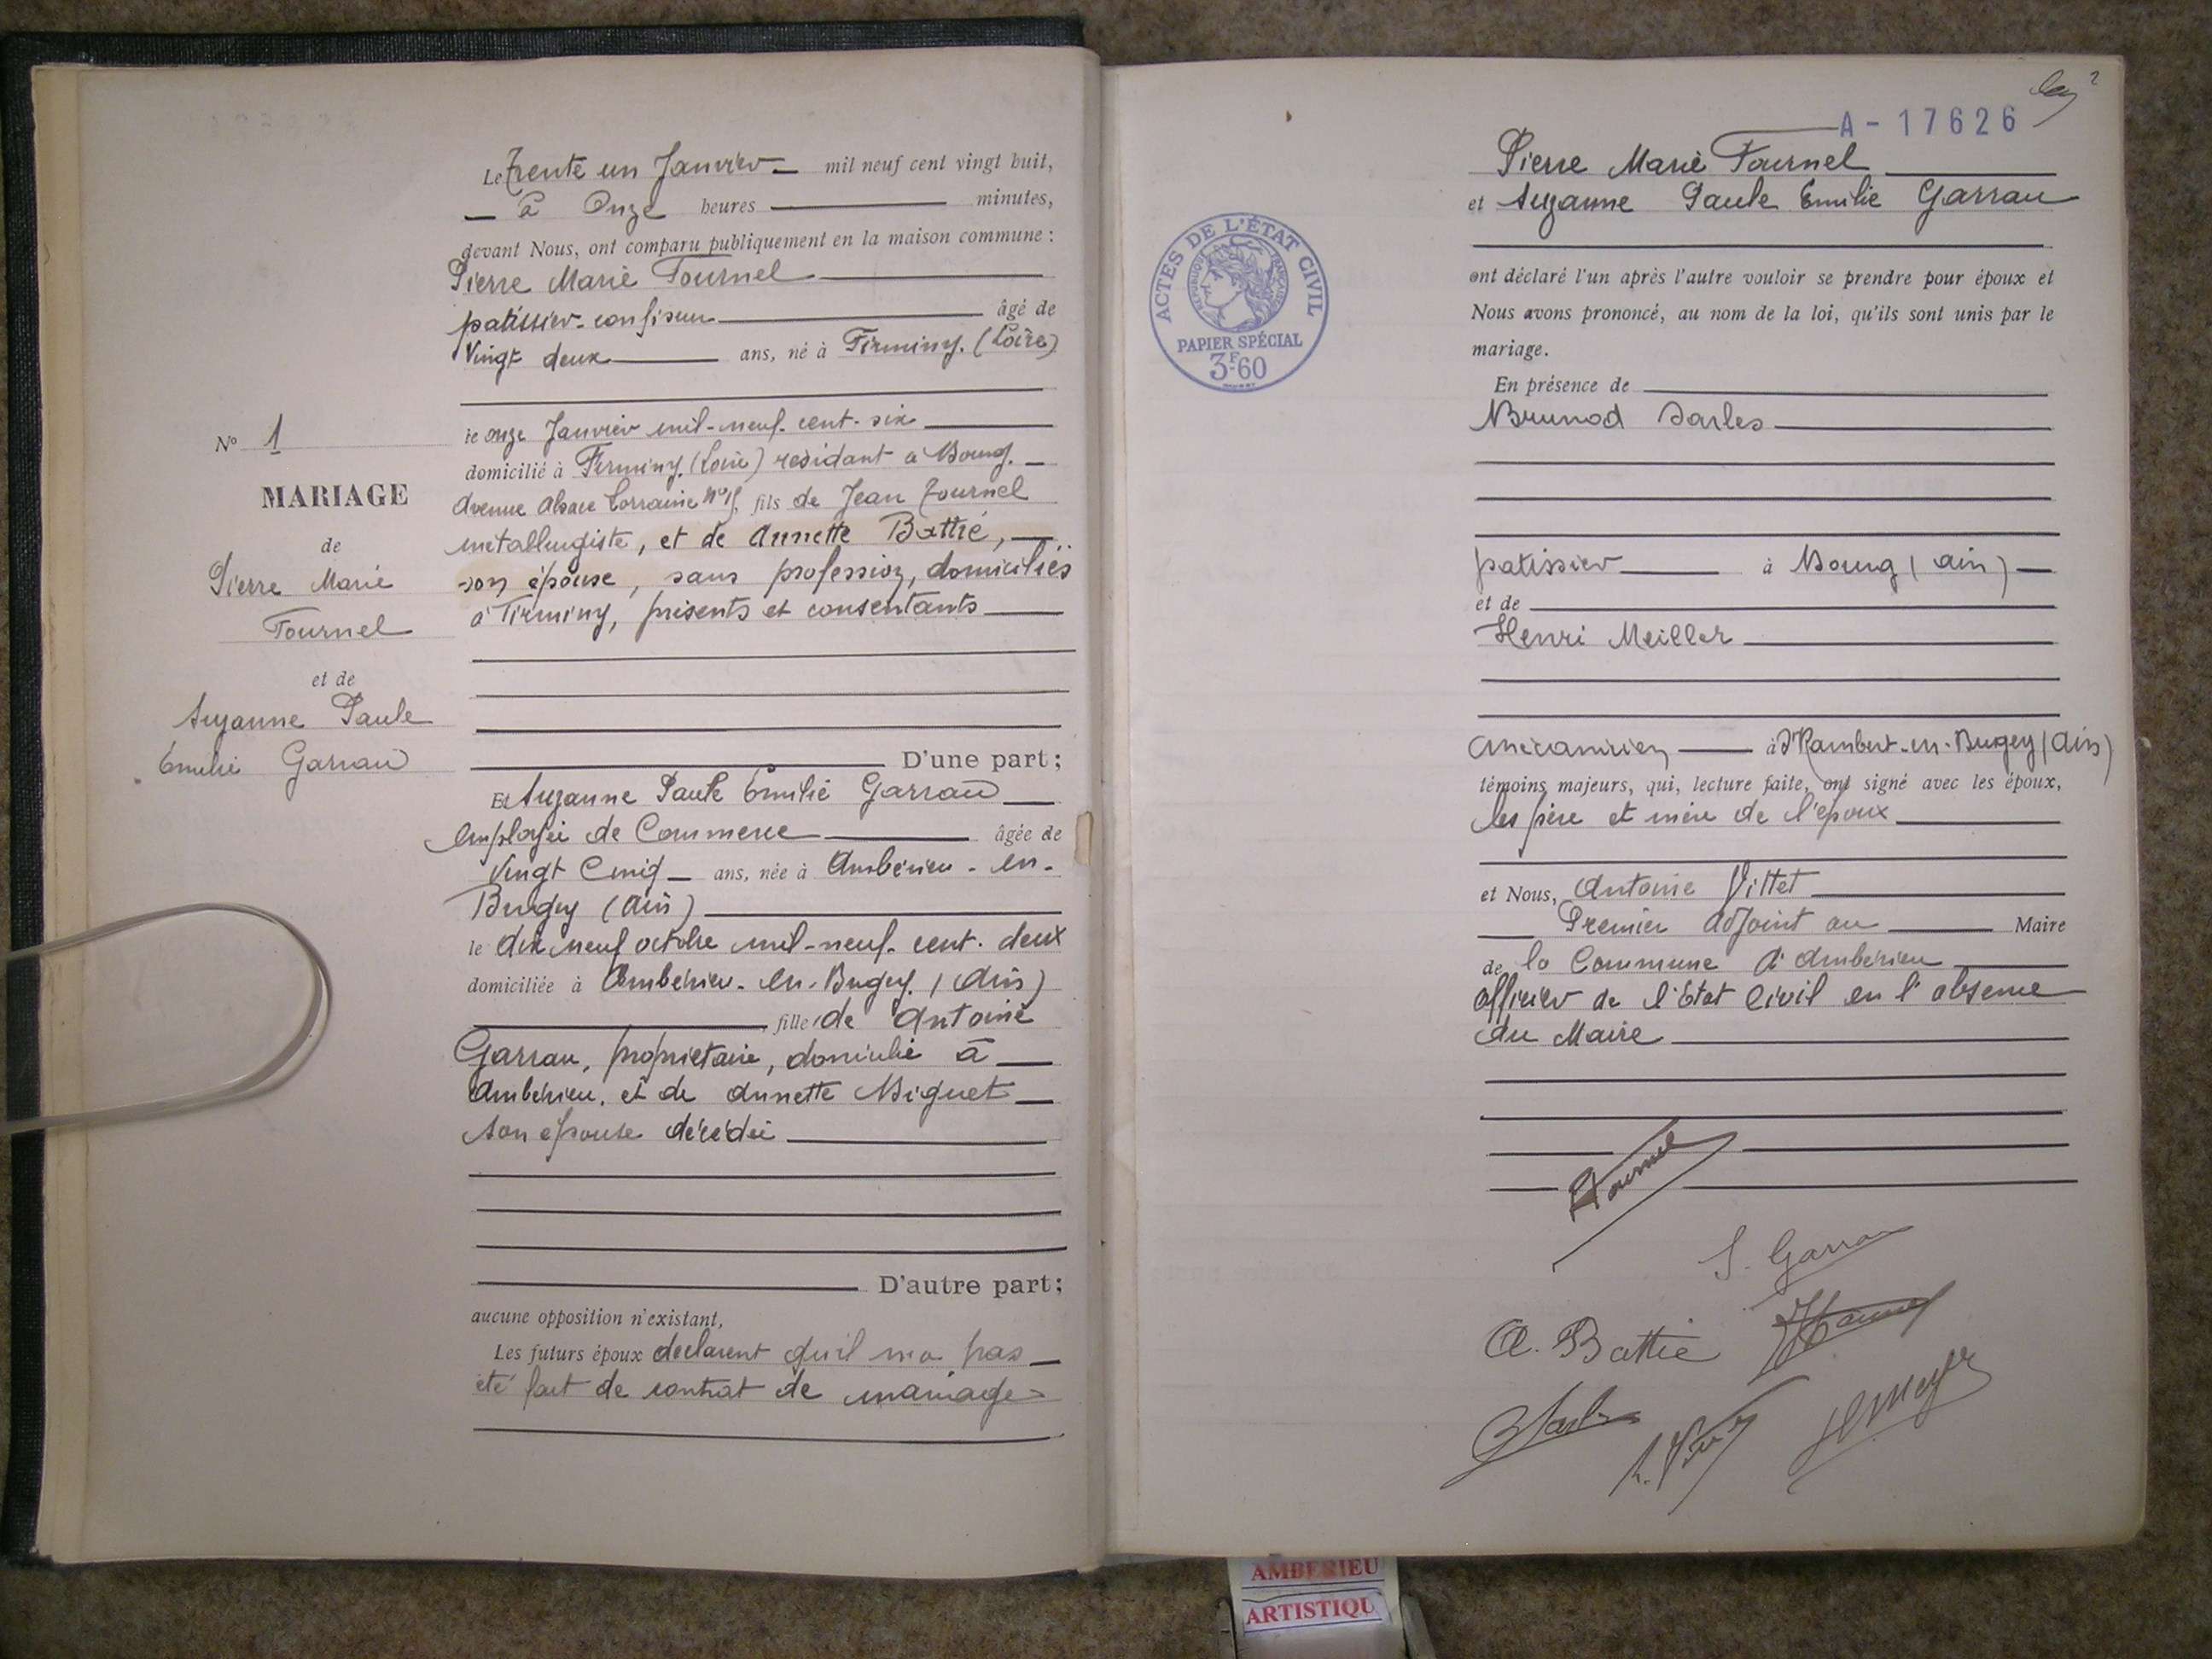 Le Trente un Janvier mil neuf cent vingt huit,
à Onze heures minutes,
devant Nous, ont comparu publiquement en la maison commune :
Pierre Marie Fournel
patissier-confiseur âgé de
Vingt deux ans, né à Firminy. (Loire)
le onze Janvier mil-neuf-cent-six
domicilié à Firminy. (Loire) residant à Bourg.
Avenue Alsace Lorraine N° fils de Jean Fournel
metallurgiste, et de Annette Battié,
son épouse, sans profession, domiciliés
à Firminy, présents et consentants
N° 1
MARIAGE
de
Pierre Marie
Fournel
et de
Suzanne Paule
Emilie Garrau
D'une part ;
Et Suzanne Paule Emilie Garrau
employée de Commerce âgée de
Vingt Cinq ans, née à Ambérieu-en-
Bugey (Ain)
le dix neuf octobre mil-neuf-cent-deux
domiciliée à Ambérieu-en-Bugey. (Ain)
, fille de Antoine
Garrau, propriétaire, domicilié à
Ambérieu. et de Annette Miguet
son épouse décédée
D'autre part ;
aucune opposition n'existant,
Les futurs époux declarent qu'il n'a pas
été fait de contrat de mariage
A-17626
Pierre Marie Fournel
et Suzanne Paule Emilie Garrau
ACTES DE L'ÉTAT CIVIL
RÉPUBLIQUE FRANÇAISE
PAPIER SPÉCIAL
3F60
ont déclaré l'un après l'autre vouloir se prendre pour époux et
Nous avons prononcé, au nom de la loi, qu'ils sont unis par le
mariage.
En présence de
Brunod Sarles
patissier à Bourg (Ain)
et de
Henri Meiller
mécanicien à St Rambert-en-Bugey (Ain)
témoins majeurs, qui, lecture faite, ont signé avec les époux,
les père et mère de l'époux
et Nous, Antoine Vittet
Premier Adjoint au Maire
de la Commune d'Ambérieu
officier de l'Etat Civil en l'absence
du Maire
Fournel
S. Garrau
A. Battié
AMBERIEU
ARTISTIQU